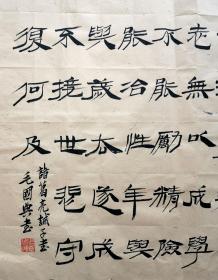 志無以成學
不能勵精險
能冶性年與
與歲去遂成
不接世悲守
復何及
諸葛亮誡子書
毛國典書